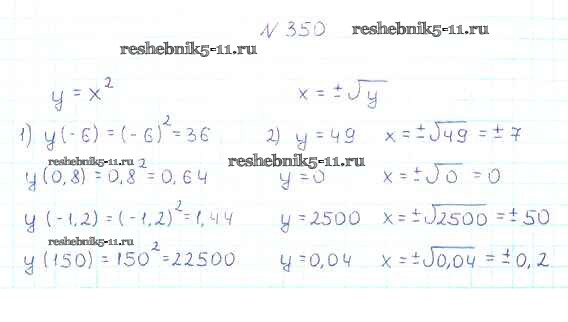 № 350
reshebnik5-11.ru
reshebnik5-11.ru
y = x² x = ±√y
1) y(-6) = (-6)² = 36 2) y = 49 x = ±√49 = ±7
reshebnik5-11.ru reshebnik5-11.ru
y(0,8) = 0,8² = 0,64 y = 0 x = ±√0 = 0
y(-1,2) = (-1,2)² = 1,44 y = 2500 x = ±√2500 = ±50
reshebnik5-11.ru
y(150) = 150² = 22500 y = 0,04 x = ±√0,04 = ±0,2